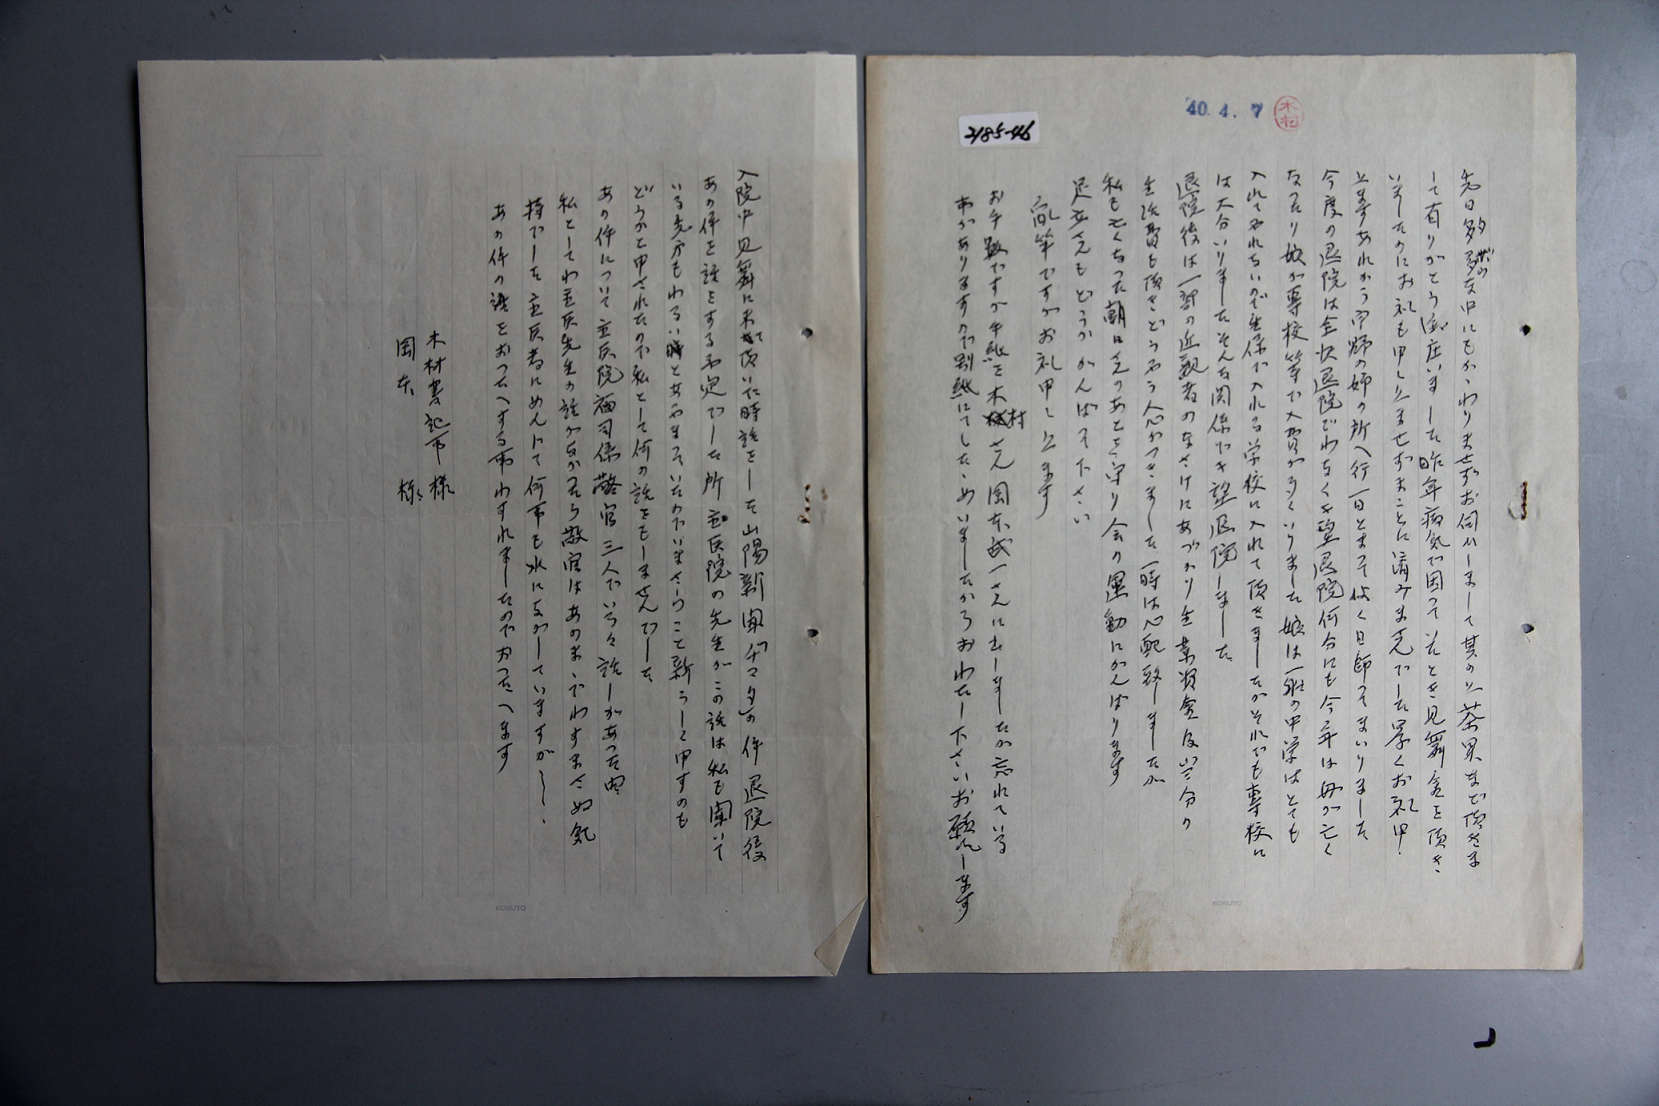 40.4.7
木村
2185-46
先日多忙の中にもかゝわりませずお伺いしまして其の上茶菓まで頂きま
して有りがとう御座いました昨年病気で困っていたとき見舞金を頂き
いましたのにお礼も申し上ませずまことに済みませんでした厚くお礼申
上ますあれから宇野の姉の所へ行一日とまって後く日帰ってまいりました
今度の退院は全快退院でわなく希望退院何分にも今年は母が亡く
なったり娘が専校等で入費が多くいりました娘は一般の中学はとても
入れてやれないので生保で入れる学校に入れて頂きましたがそれでも専校に
は大分いりましたそんな関係で希望退院しました
退院後は一部の近親者のなさけにあづかり生業資金及い分の
生活費も頂きどうやら人心がつきました一時は心配致しましたが
私も亡くなった朝日さんのあとを守り会の運動にがんばります
足立さんもどうかがんばって下さい
乱筆ですがお礼申し上ます
お手数ですが手紙を木村さん岡本武一さんに出しましたが忘れている
事がありますので別紙にてしたゝめいましたからおわたし下さいお願しします
入院中見舞に来て頂いた時話をした山陽新聞「デマ夕」の件退院後
あの件を話をする予定でした所主医院の先生がこの話は私も聞いて
いる貴方もわるい時とあやまっていたのでいまさらこと新らしく申すのも
どうかと申されたので私として何の話をもしませんでした
あの件について主医院福司係警官三人でいろ々話しがあった由
私としてわ主医先生の話がなかったら警官はあのまゝでわすまさぬ気
持でした主医者にめんじて何事も水にながしていますが〜〜.
あの件の話をおつたへする事わすれましたのでおつたへます
木村書記市様
岡本 様
KOKUYO
KOKUYO